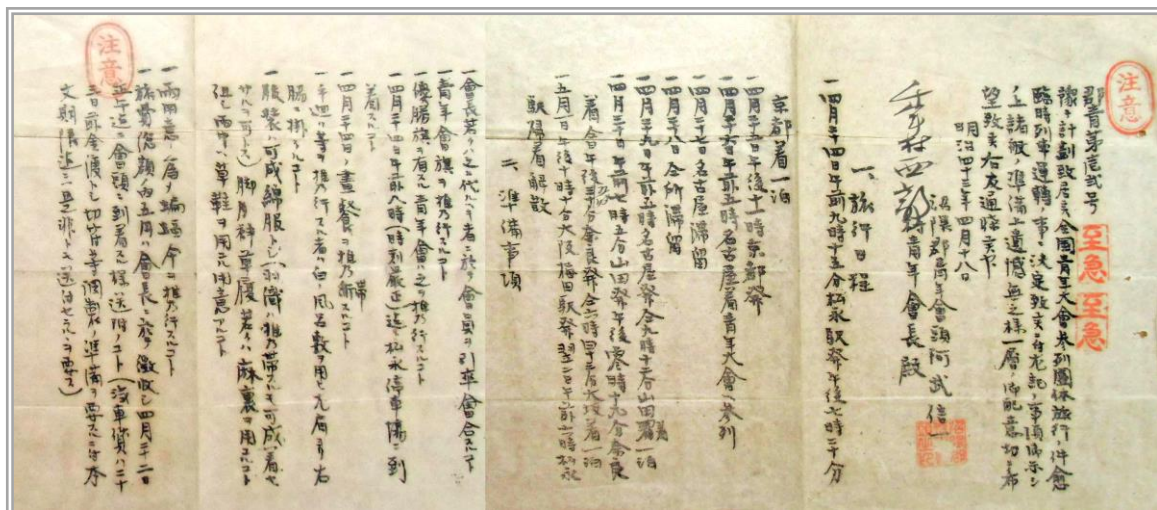 注意
郡青第壱弐号
至急 至急
予テ計劃致居候全国青年大會参列團体旅行ノ件愈
臨時列車運轉ノ事ニ決定致候ニ付左記ノ事項御示シ
ノ上諸般ノ準備ニ遺憾無之様一層ノ御配意切ニ希
望致候右及通牒候也
明治四十三年四月十八日
沼隈郡青年會頭阿武信一
青年會長殿
一、旅行日程
一四月二十四日午前九時十五分松永駅発午後七時二十分
京都着一泊
一四月二十五日午後十一時京都発
一四月二十六日午前五時名古屋着青年大會ヘ参列
一四月二十七日名古屋滞留
一四月二十八日仝所滞留
一四月二十九日午前五時名古屋発仝九時十二分山田着一泊
一四月三十日午前七時五分山田発午後零時十九分奈良
着仝日午後
奈良発仝六時四十五分大坂着一泊
一五月一日午後十時十分大阪梅田駅発翌二日午前六時松永
駅帰着解散
二、準備事項
一會長若クハ之ニ代ハル者ニ於テ會員ヲ引率會合スルコト
一青年會旗ヲ携ヘ行スルコト
一優勝旗ヲ有スル青年會ハ之ヲ携ヘ行スルコト
一四月二十四日午前八時(時刻厳正)迄ニ松永停車場ニ到
着スルコト
一四月二十四日ノ晝餐ヲ携帯スルコト
一手廻リ等ヲ携ヘ行スル者ハ白ノ風呂敷ヲ用ヒ左肩ヨリ右
脇ニ掛クルコト
一服装ハ可成綿服トシ
脚胖科草履若クハ麻裏ヲ用ユルコト
但シ雨中ハ草鞋ヲ用ユル用意アルコト
一雨用意ノ為メ蝙蝠傘ヲ携ヘ行スルコト
注意
一旅費
五円ハ會長ニ於テ徴収シ四月二十二日
正午迄ニ會頭ニ到着スル様送附ノコト(汽車賃ハ二十
三日前金渡トシ切符等調製ノ準備ヲ要スルニ付本
文期限迄ニ是非トモ送付セラルヽヲ要ス)